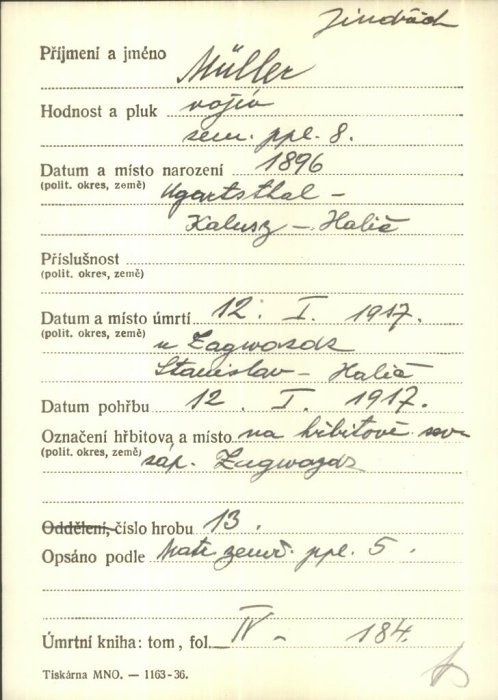 Jindřich
Příjmení a jméno Müller
Hodnost a pluk vojín
zem. ppl. 8.
Datum a místo narození 1896
(polit. okres, země) Ugartsthal -
Kalusz - Halič
Příslušnost
(polit. okres, země)
Datum a místo úmrtí 12. I. 1917.
(polit. okres, země) u Zagwozdz
Stanislav - Halič
Datum pohřbu 12. I. 1917.
Označení hřbitova a místo na hřbitově sev.
(polit. okres, země) záp. Zagwozdz
Oddělení, číslo hrobu 13.
Opsáno podle Matr. zemř. ppl. 5.
Úmrtní kniha: tom, fol. IV - 184.
Tiskárna MNO. — 1163-36.